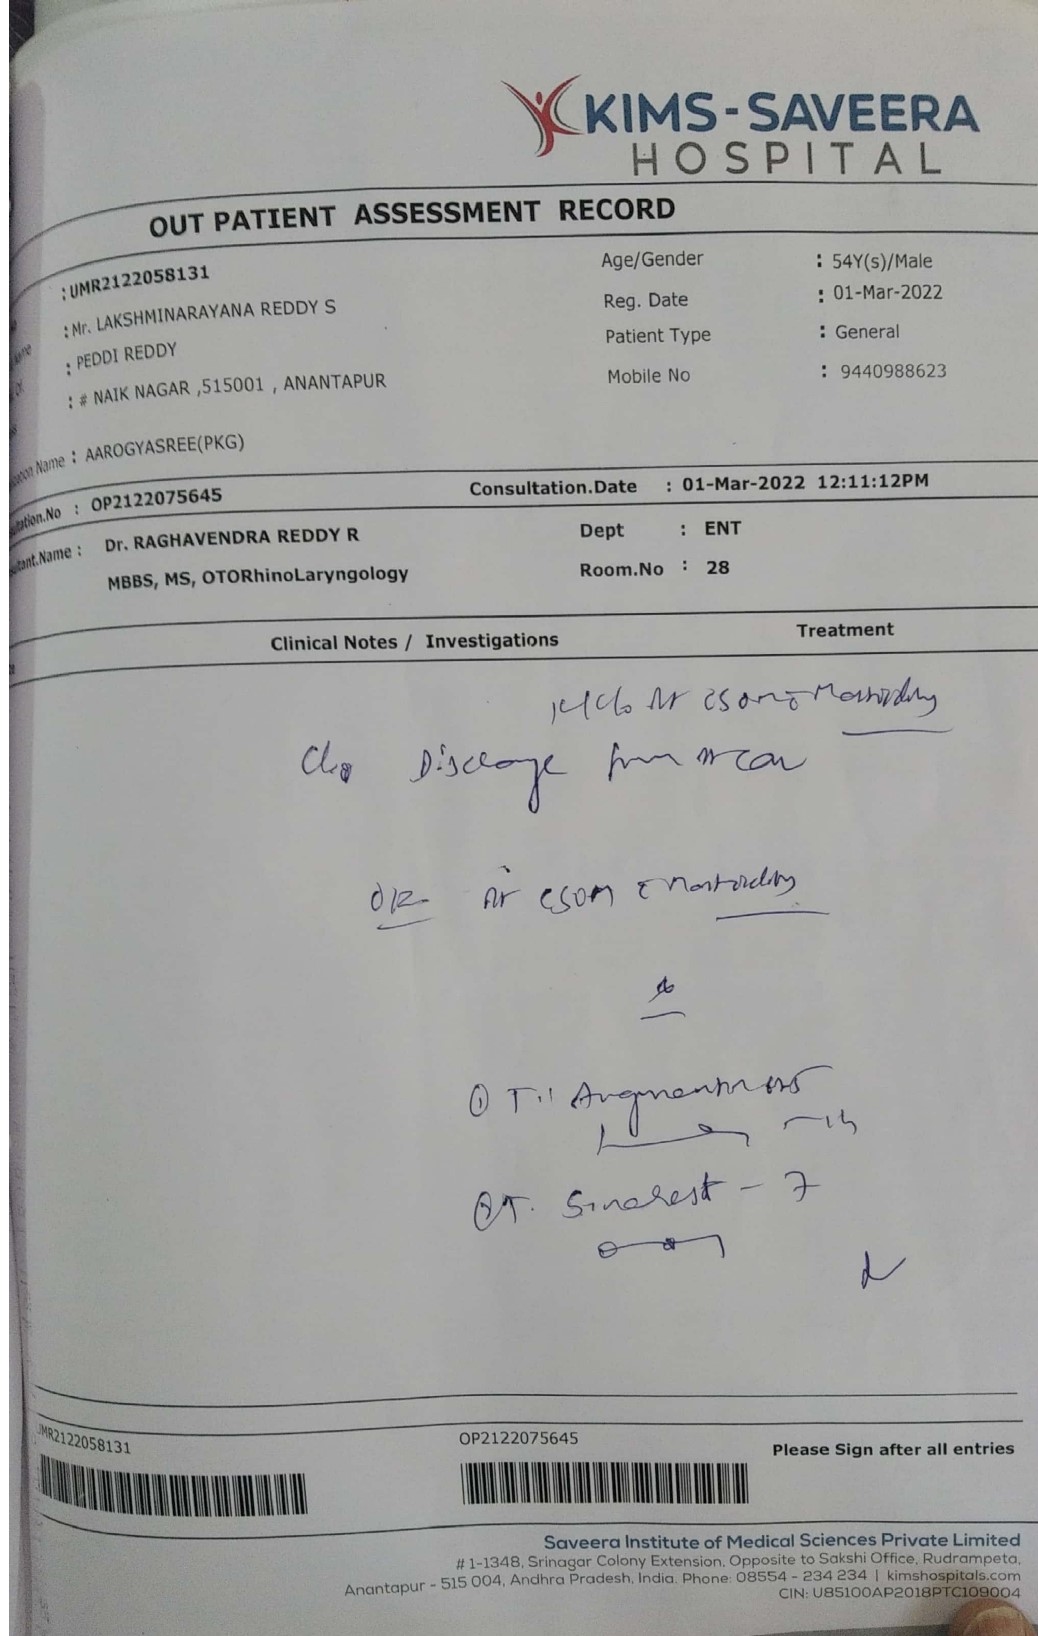 KIMS-SAVEERA
HOSPITAL
OUT PATIENT ASSESSMENT RECORD
: UMR2122058131
Age/Gender : 54Y(s)/Male
: Mr. LAKSHMINARAYANA REDDY S
Reg. Date : 01-Mar-2022
: PEDDI REDDY
Patient Type : General
: # NAIK NAGAR ,515001 , ANANTAPUR
Mobile No : 9440988623
Name : AAROGYASREE(PKG)
ltation.No : OP2122075645
Consultation.Date : 01-Mar-2022 12:11:12PM
ltant.Name : Dr. RAGHAVENDRA REDDY R
Dept : ENT
MBBS, MS, OTORhinoLaryngology
Room.No : 28
Clinical Notes / Investigations
Treatment
CSOM
Discharge from
O/E CSOM
① T. Augmentin
② T. Sinarest - 7
UMR2122058131
OP2122075645
Please Sign after all entries
Saveera Institute of Medical Sciences Private Limited
# 1-1348, Srinagar Colony Extension, Opposite to Sakshi Office, Rudrampeta,
Anantapur - 515 004, Andhra Pradesh, India. Phone: 08554 - 234 234 | kimshospitals.com
CIN: U85100AP2018PTC109004